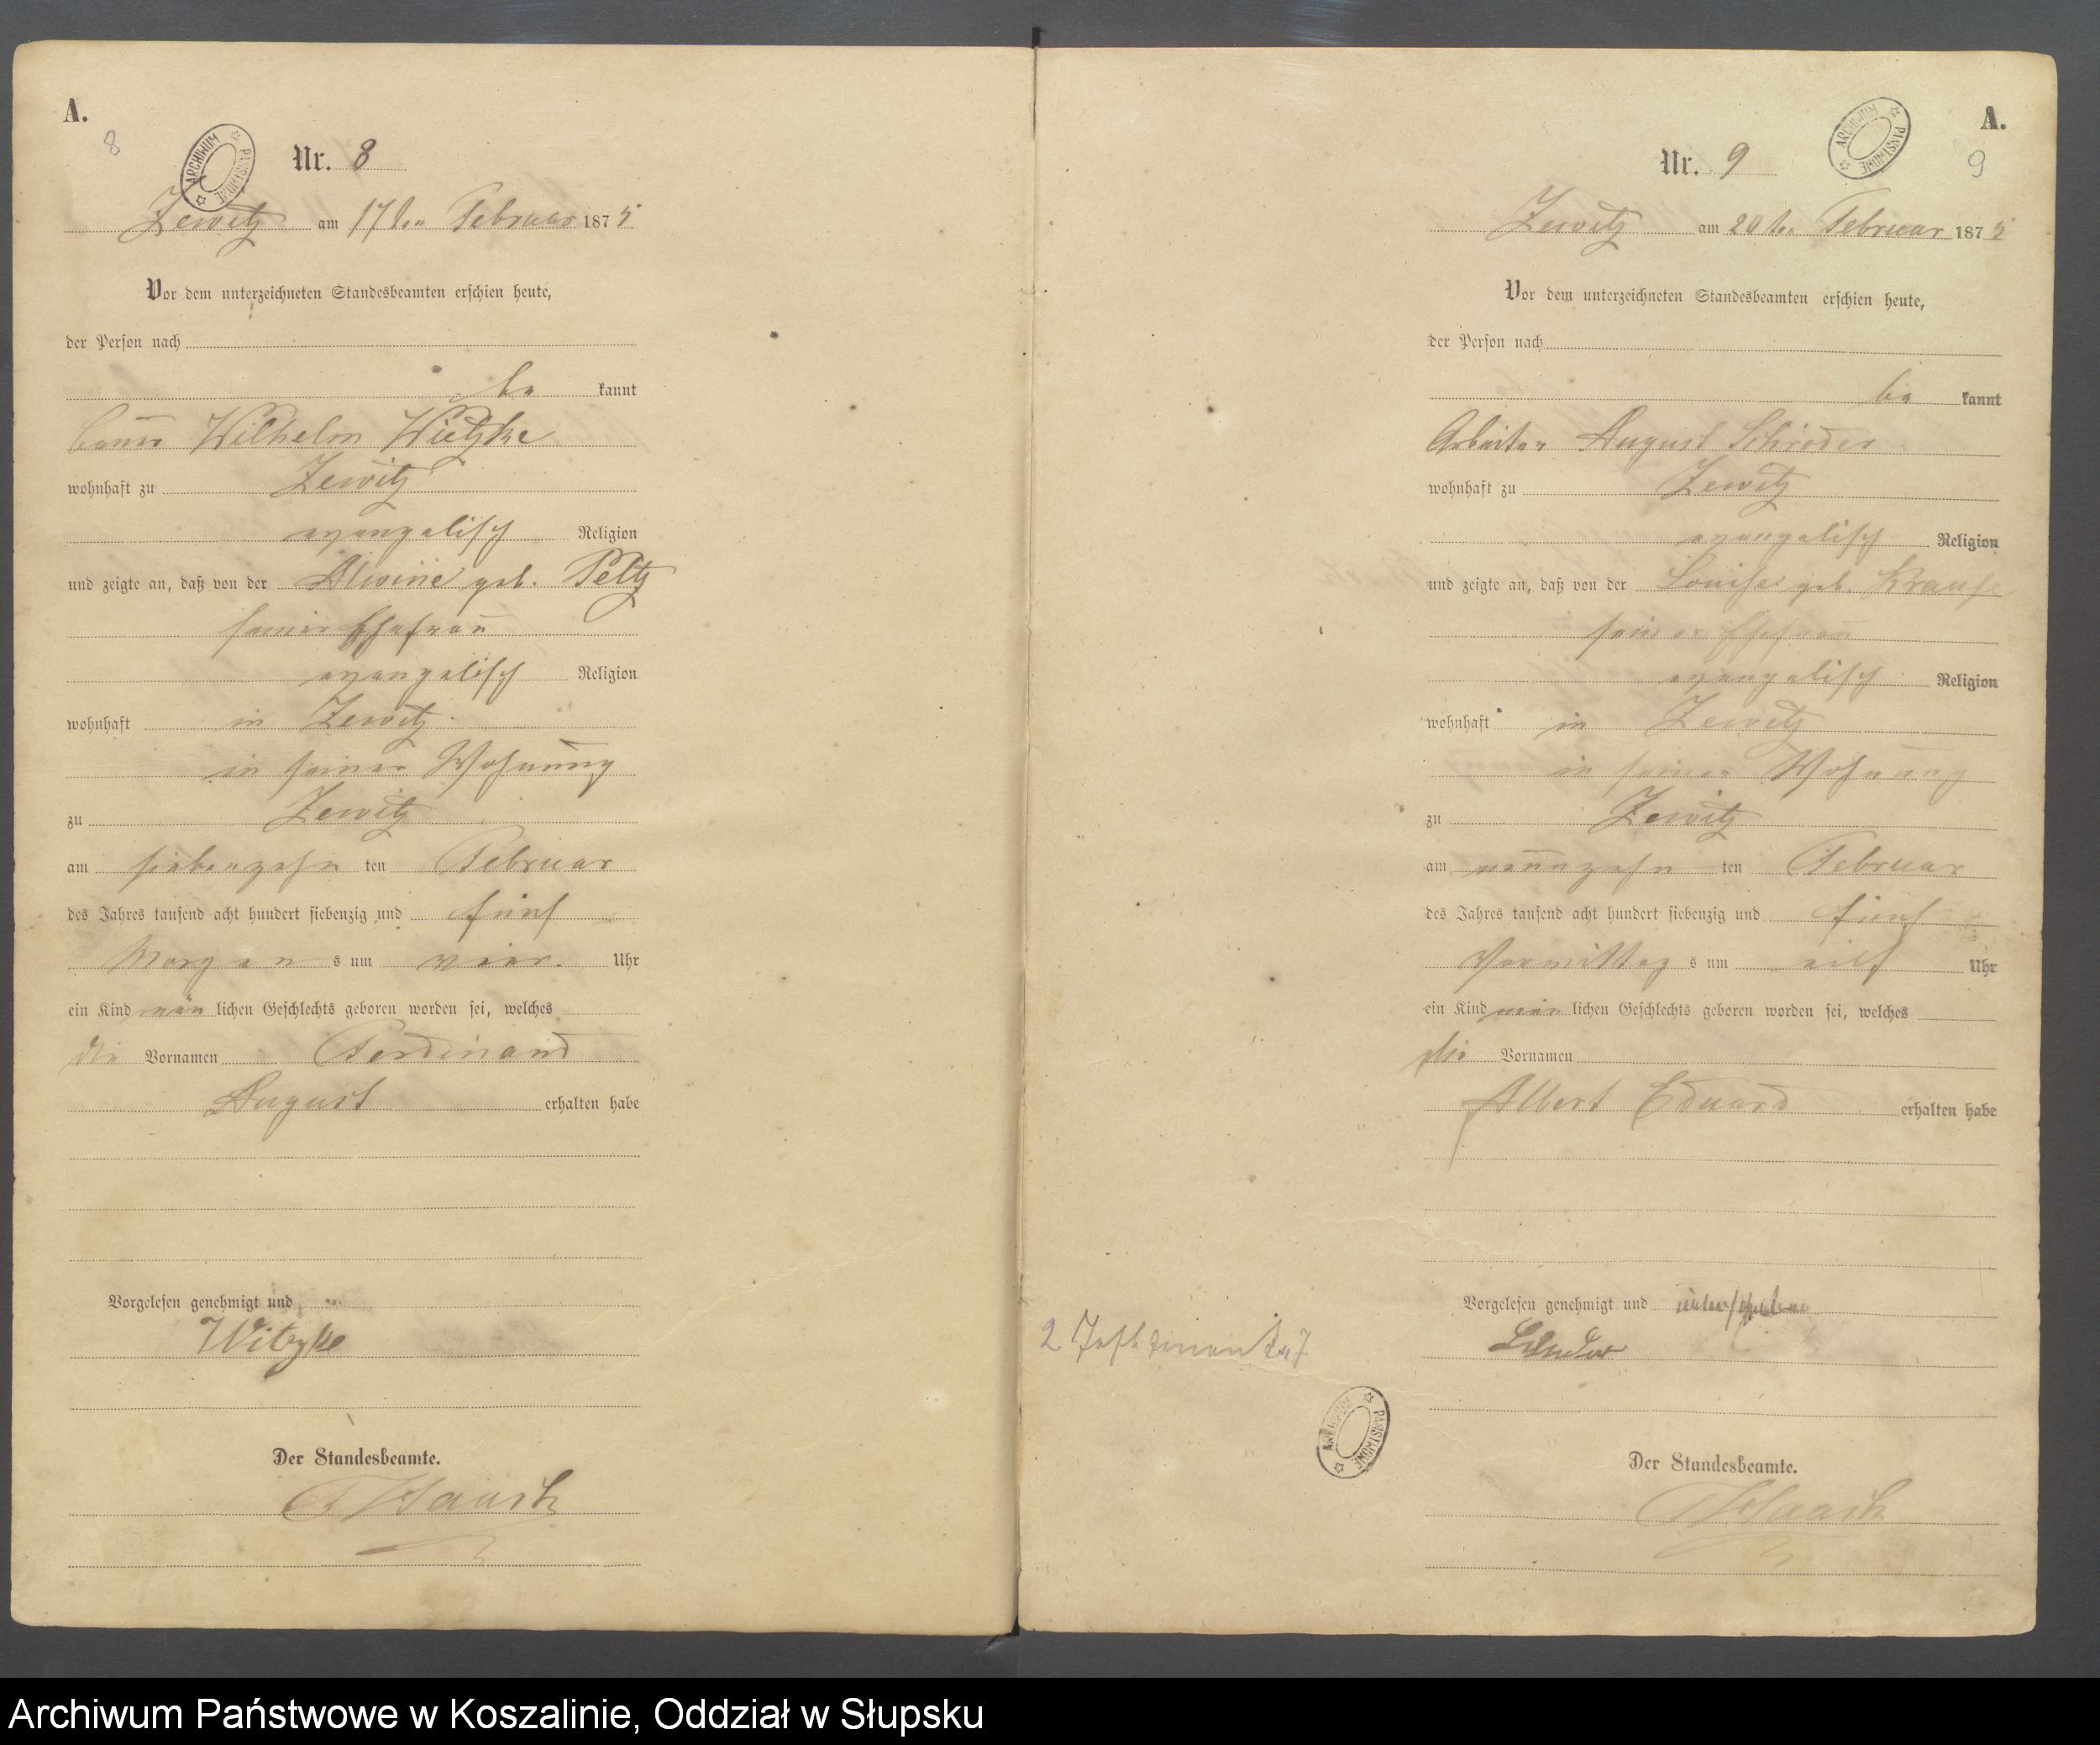 A.
8
ARCHIWUM PAŃSTWOWE
Nr. 8
Zewitz am 17ten Februar 1875
Vor dem unterzeichneten Standesbeamten erschien heute,
der Person nach
be kannt
Bauer Wilhelm Wietzke
wohnhaft zu Zewitz
evangelisch Religion
und zeigte an, daß von der Alwine geb. Peltz
seiner Ehefrau
evangelisch Religion
wohnhaft in Zewitz
in seiner Wohnung
zu Zewitz
am siebenzehn ten Februar
des Jahres tausend acht hundert siebenzig und fünf
Morgen s um vier Uhr
ein Kind män lichen Geschlechts geboren worden sei, welches
die Vornamen Ferdinand
August erhalten habe
Vorgelesen genehmigt und
Witzke
Der Standesbeamte.
Haack
A.
9
ARCHIWUM PAŃSTWOWE
Nr. 9
Zewitz am 20ten Februar 1875
Vor dem unterzeichneten Standesbeamten erschien heute,
der Person nach
be kannt
Arbeiter August Schröder
wohnhaft zu Zewitz
evangelisch Religion
und zeigte an, daß von der Louise geb. Krause
seiner Ehefrau
evangelisch Religion
wohnhaft in Zewitz
in seiner Wohnung
zu Zewitz
am neunzehn ten Februar
des Jahres tausend acht hundert siebenzig und fünf
Vormittag s um eilf Uhr
ein Kind män lichen Geschlechts geboren worden sei, welches
die Vornamen
Albert Eduard erhalten habe
Vorgelesen genehmigt und unterschrieben
Schröder
2
ARCHIWUM PAŃSTWOWE
Der Standesbeamte.
Haack
Archiwum Państwowe w Koszalinie, Oddział w Słupsku